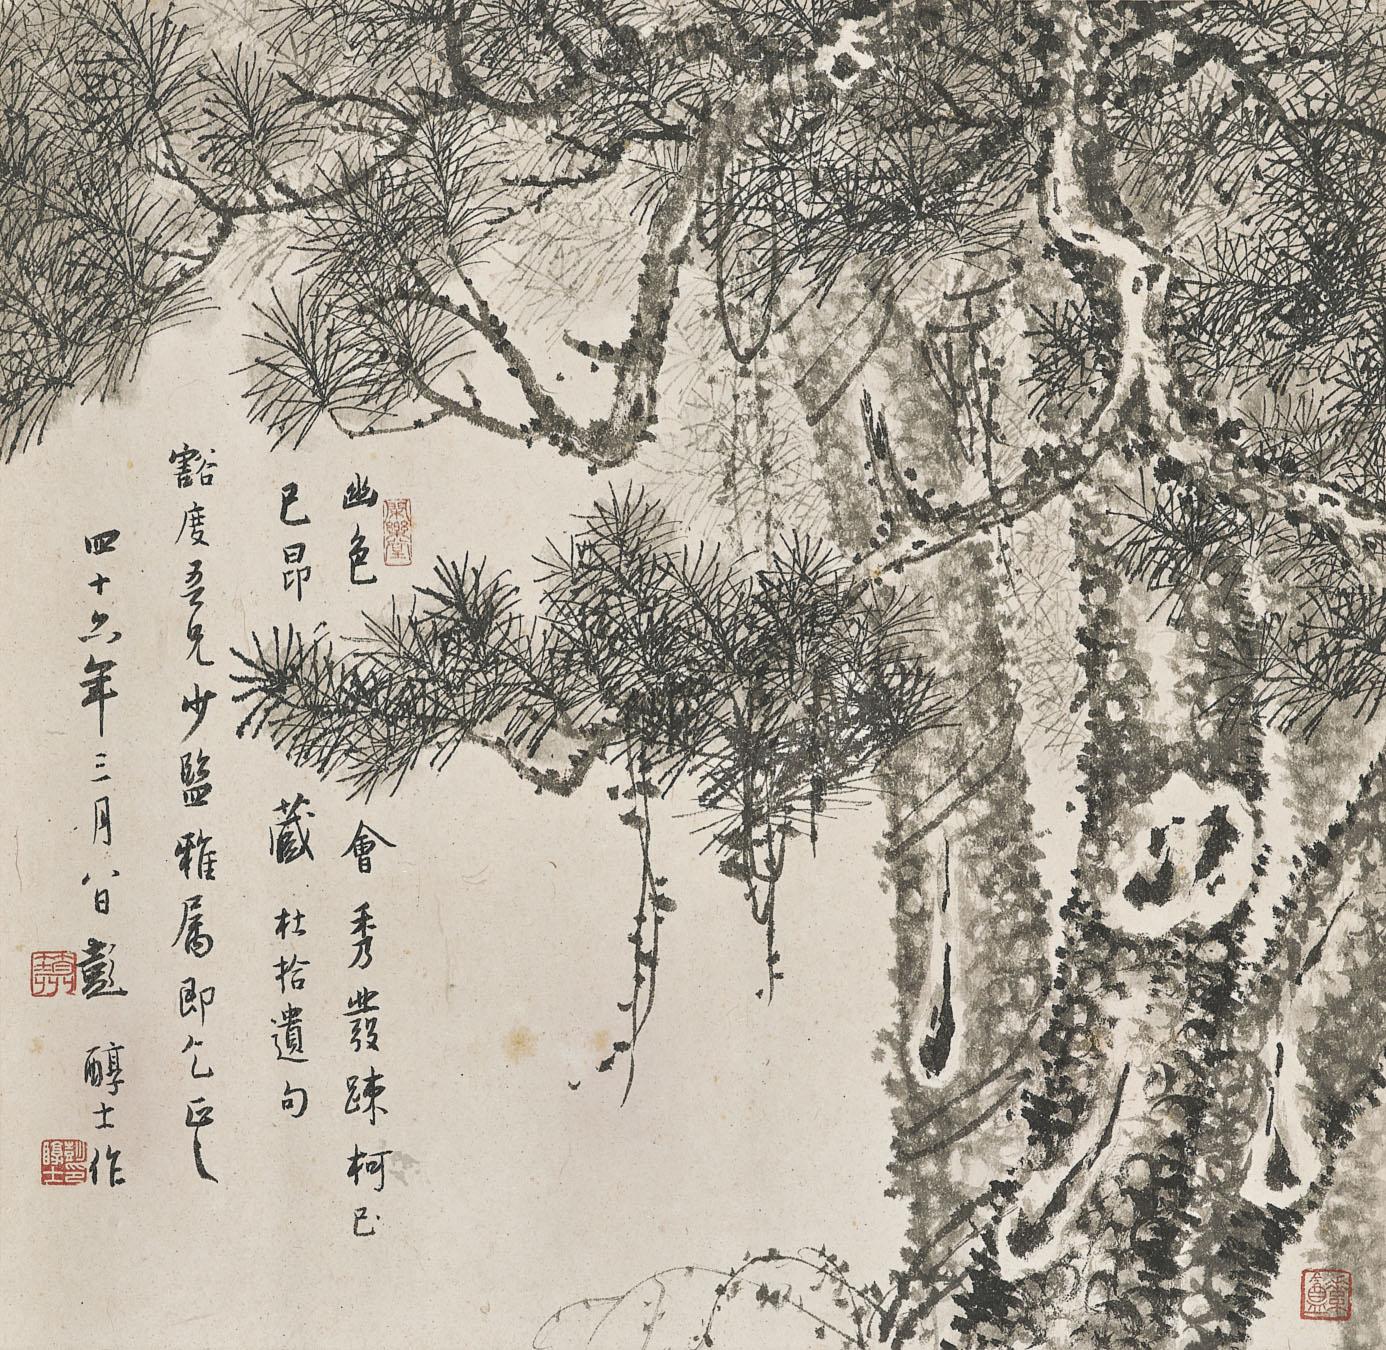 幽色會秀發疎柯已
已昂藏杜拾遺句
豁度吾兄少監雅屬即乞正之
四十六年三月八日彭醇士作